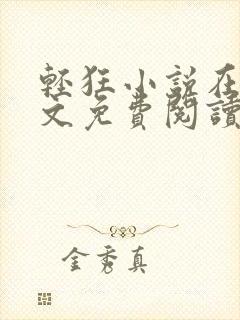 輕狂小說在
文免費閱讀
金秀真